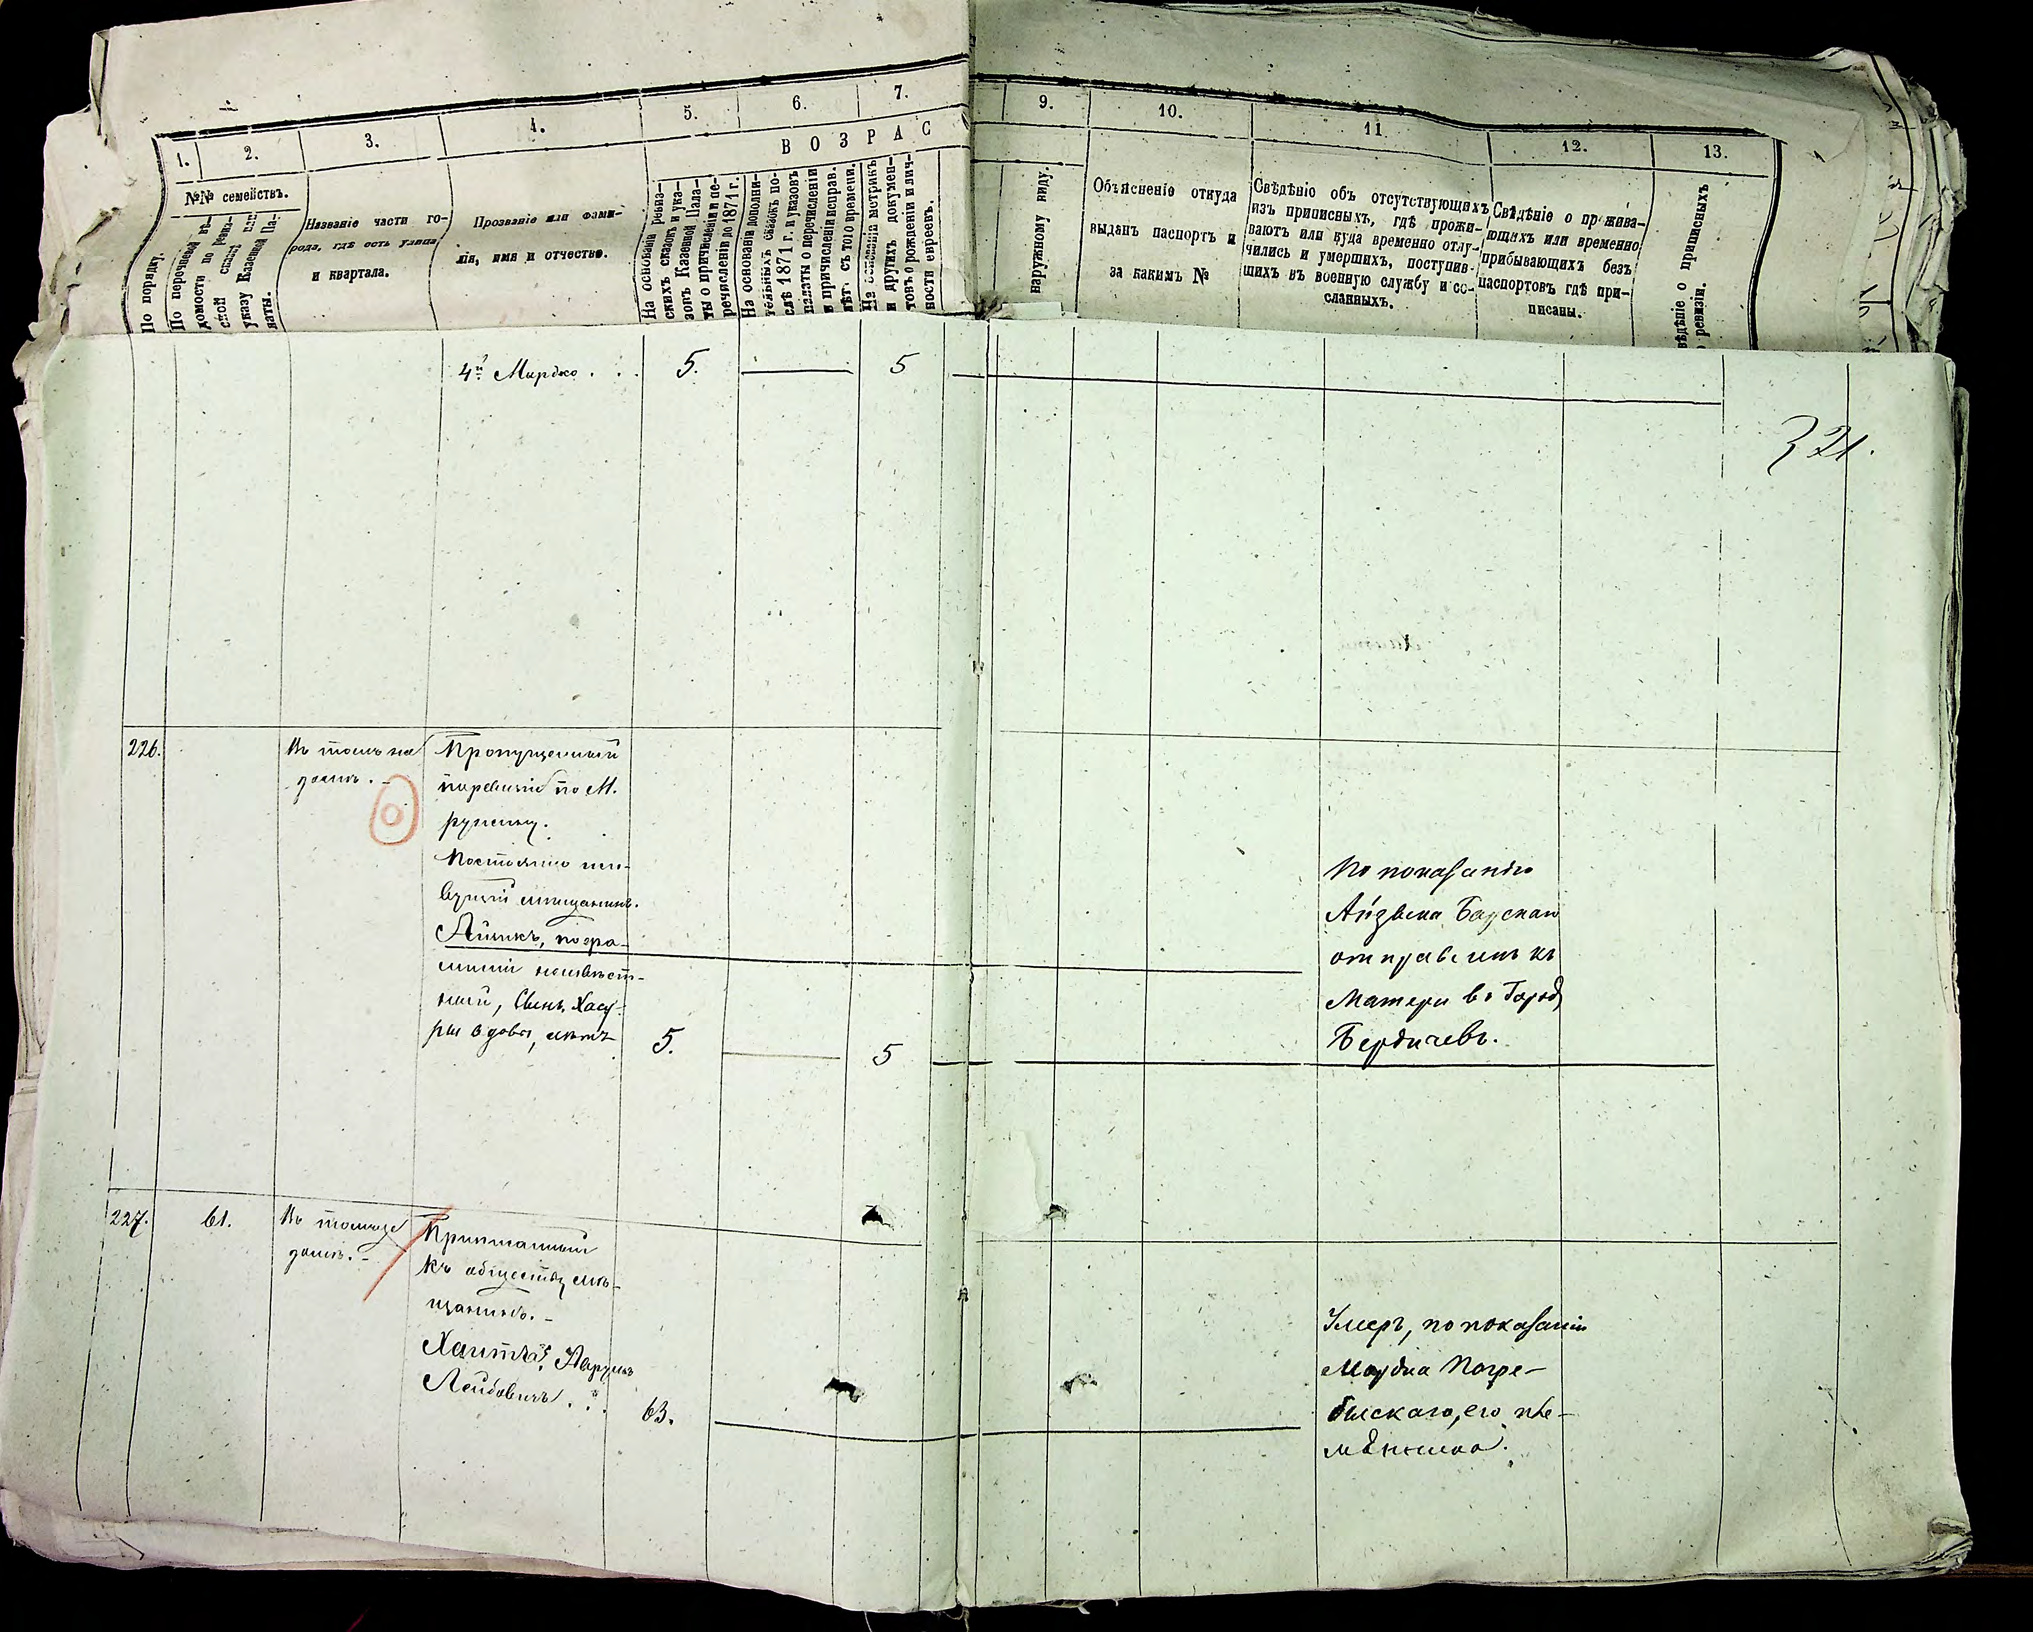 1.
2.
3.
4.
5.
6.
7.
9.
10.
11.
12.
13.
ВОЗРАС
По порядку.
№№ семействъ.
По перечневой вѣ-
домости по реви-
ской
указу Казенной Па-
латы.
Названіе части го-
рода, гдѣ есть улица
и квартала.
Прозваніе или фами-
лія, имя и отчество.
На основаніи ревиз-
скихъ сказокъ и ука-
зовъ Казенной Пала-
ты о причисленіи и пе-
речисленіи до 1871 г.
На основаніи дополни-
тельныхъ сказокъ по-
слѣ 1871 г. и указовъ
палаты о перечисленіи
и причисленіи исправ.
лѣтъ съ того времени.
На основаніи метрикъ
и другихъ докумен-
товъ о рожденіи и лич-
ности евреевъ.
наружному виду.
Объясненіе откуда
выданъ паспортъ и
за какимъ №
Свѣдѣніе объ отсутствующихъ
изъ приписныхъ, гдѣ прожи-
ваютъ или куда временно отлу-
чились и умершихъ, поступив-
шихъ въ военную службу и со-
сланныхъ.
Свѣдѣніе о прожива-
ющихъ или временно
прибывающихъ безъ
паспортовъ гдѣ при-
писаны.
вѣдѣніе о приписныхъ
ревизіи.
4й Мордко . . . 5. 5
321.
226.
Въ томъ же
домѣ. -
Пропущенный
по ревизіи по М.
Ружину.
Постоянно жи-
вущій мѣщанинъ.
Айзикъ, по фа-
миліи неизвѣст-
ный, Сынъ
вдовы, лѣтъ 5. 5
По показанію
Айзыка
отправленъ къ
матери въ Городъ
Бердичевъ.
227. 61.
Въ томъ же
домѣ. -
Приписанный
къ обществу мѣ-
щанинъ. -
Аврумъ
Лейбовичъ . . . 63.
Умеръ, по показанію
Мордка Погре-
быскаго, его пле-
мянника.